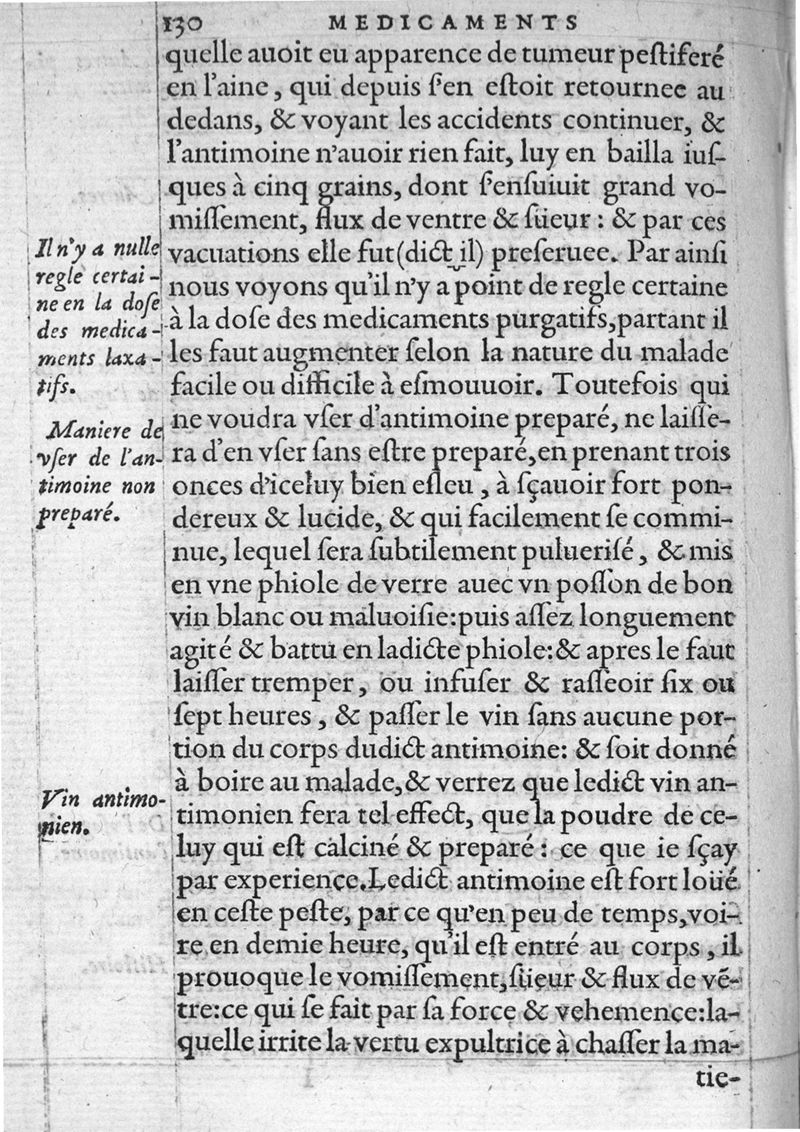 130 MEDICAMENTS
quelle auoit eu apparence de tumeur peſtiferé
en l'aine, qui depuis ſ'en eſtoit retournee au
dedans, & voyant les accidents continuer, &
l'antimoine n'auoir rien fait, luy en bailla iuſ-
ques à cinq grains, dont ſ'enſuiuit grand vo-
miſſement, flux de ventre & ſüeur : & par ces
vacuations elle fut (dict il) preſeruee. Par ainſi
nous voyons qu'il n'y a point de regle certaine
à la doſe des medicaments purgatifs, partant il
les faut augmenter ſelon la nature du malade
facile ou difficile à eſmouuoir. Toutefois qui
ne voudra vſer d'antimoine preparé, ne laiſſe-
ra d'en vſer ſans eſtre preparé, en prenant trois
onces d'iceluy bien eſleu , à ſçauoir fort pon-
dereux & lucide, & qui facilement ſe commi-
nue, lequel ſera ſubtilement pulueriſé , & mis
en vne phiole de verre auec vn poſſon de bon
vin blanc ou maluoiſie: puis aſſez longuement
agité & battu en ladicte phiole: & apres le faut
laiſſer tremper, ou infuſer & raſſeoir ſix ou
ſept heures , & paſſer le vin ſans aucune por-
tion du corps dudict antimoine: & ſoit donné
à boire au malade, & verrez que ledict vin an-
timonien fera tel effect, que la poudre de ce-
luy qui eſt calciné & preparé : ce que ie ſçay
par experience. Ledict antimoine eſt fort loüé
en ceſte peſte, par ce qu'en peu de temps, voi-
re en demie heure, qu'il eſt entré au corps , il
prouoque le vomiſſement, ſüeur & flux de vẽ-
tre: ce qui ſe fait par ſa force & vehemence: la-
quelle irrite la vertu expultrice à chaſſer la ma-
tie-
Il n'y a nulle
regle certai-
ne en la doſe
des medica-
ments laxa-
tifs.
Maniere de
vſer de l'an-
timoine non
preparé.
Vin antimo-
nien.